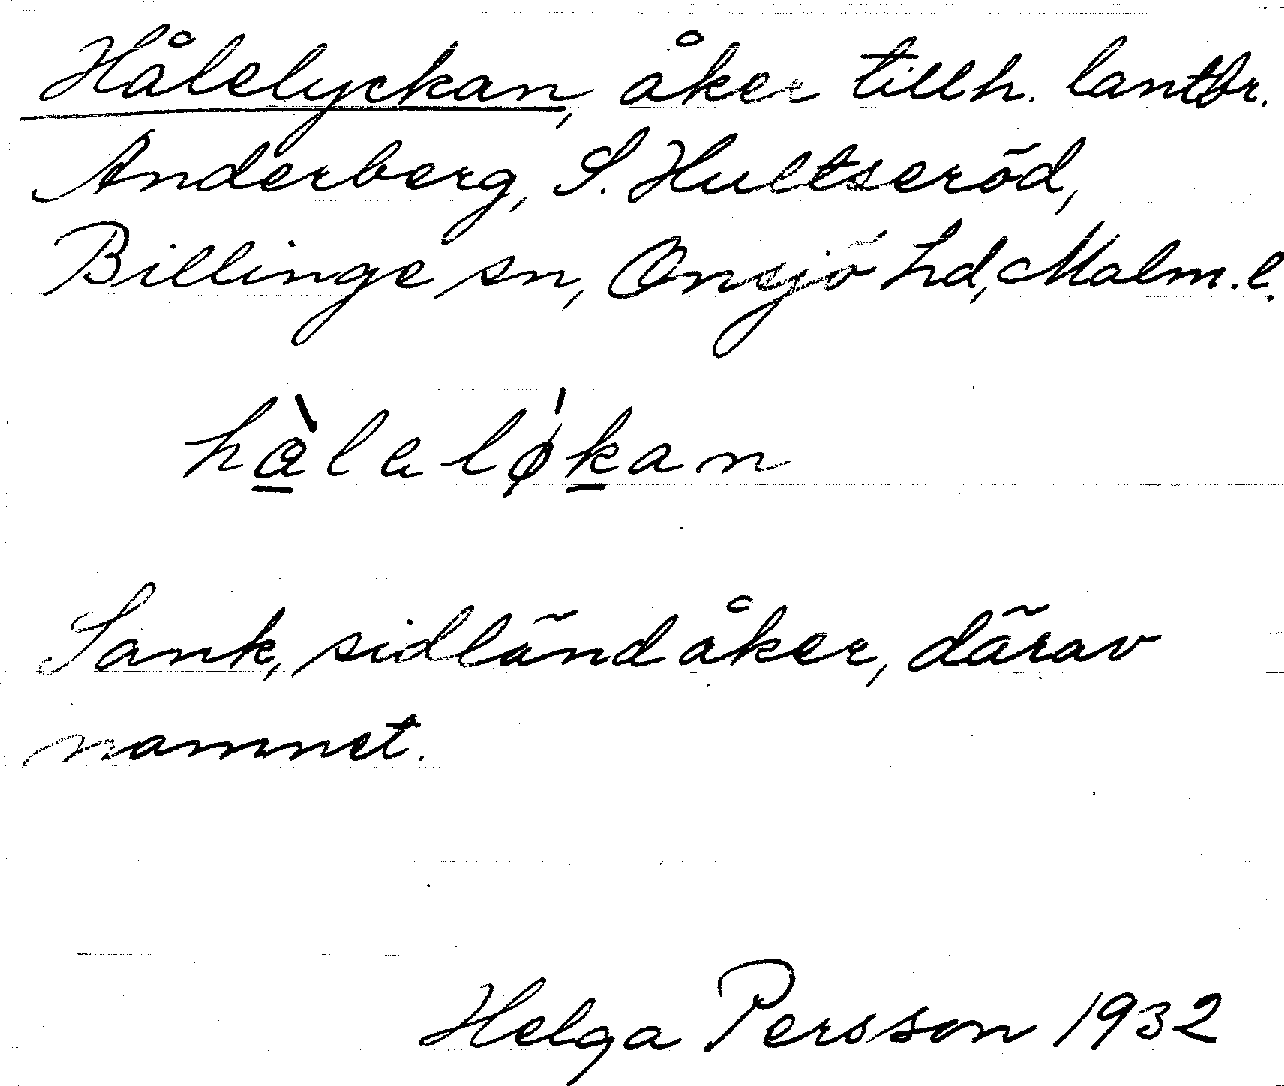 Hålelyckan, åker tillh. lantbr.
Anderberg, S. Hultseröd,
Billinge sn, Onsjö hd, Malm. l.
hàlalǿkan
Sank, sidländ åker, därav
namnet.
Helga Persson 1932